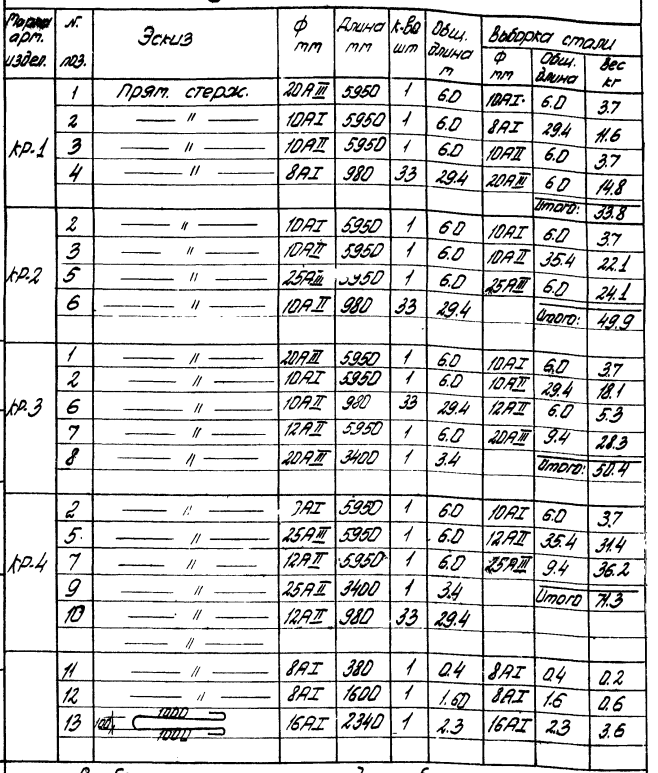 Марка арт. издел. N. поз. Эскиз ф мм Длина мм к-во шт Общ. длина м Выборка стали
ф мм Общ. длина вес кг
КР-1
1 Прям. стерж. 20AIII 5950 1 6.0 10AI 6.0 3.7
2 — " — 10AI 5950 1 6.0 8AI 29.4 11.6
3 — " — 10AII 5950 1 6.0 10AII 6.0 3.7
4 — " — 8AI 980 33 29.4 20AIII 6.0 14.8
Итого: 33.8
КР-2
2 — " — 10AI 5950 1 6.0 10AI 6.0 3.7
3 — " — 10AII 5950 1 6.0 10AII 35.4 22.1
5 — " — 25AIII 5950 1 6.0 25AIII 6.0 24.1
6 — " — 10AII 980 33 29.4 Итого: 49.9
КР-3
1 — " — 20AIII 5950 1 6.0 10AI 6.0 3.7
2 — " — 10AI 5950 1 6.0 10AII 29.4 18.1
6 — " — 10AII 980 33 29.4 12AII 6.0 5.3
7 — " — 12AII 5950 1 6.0 20AIII 9.4 28.3
8 — " — 20AIII 3400 1 3.4 Итого: 50.4
КР-4
2 — " — AI 5950 1 6.0 10AI 6.0 3.7
5 — " — 25AIII 5950 1 6.0 12AII 35.4 31.4
7 — " — 12AII 5950 1 6.0 25AIII 9.4 36.2
9 — " — 25AIII 3400 1 3.4 Итого 71.3
10 — " — 12AII 980 33 29.4
— " —
11 — " — 8AI 380 1 0.4 8AI 0.4 0.2
12 — " — 8AI 1600 1 1.60 8AI 1.6 0.6
13 100 1000 1000 16AI 2340 1 2.3 16AI 2.3 3.6